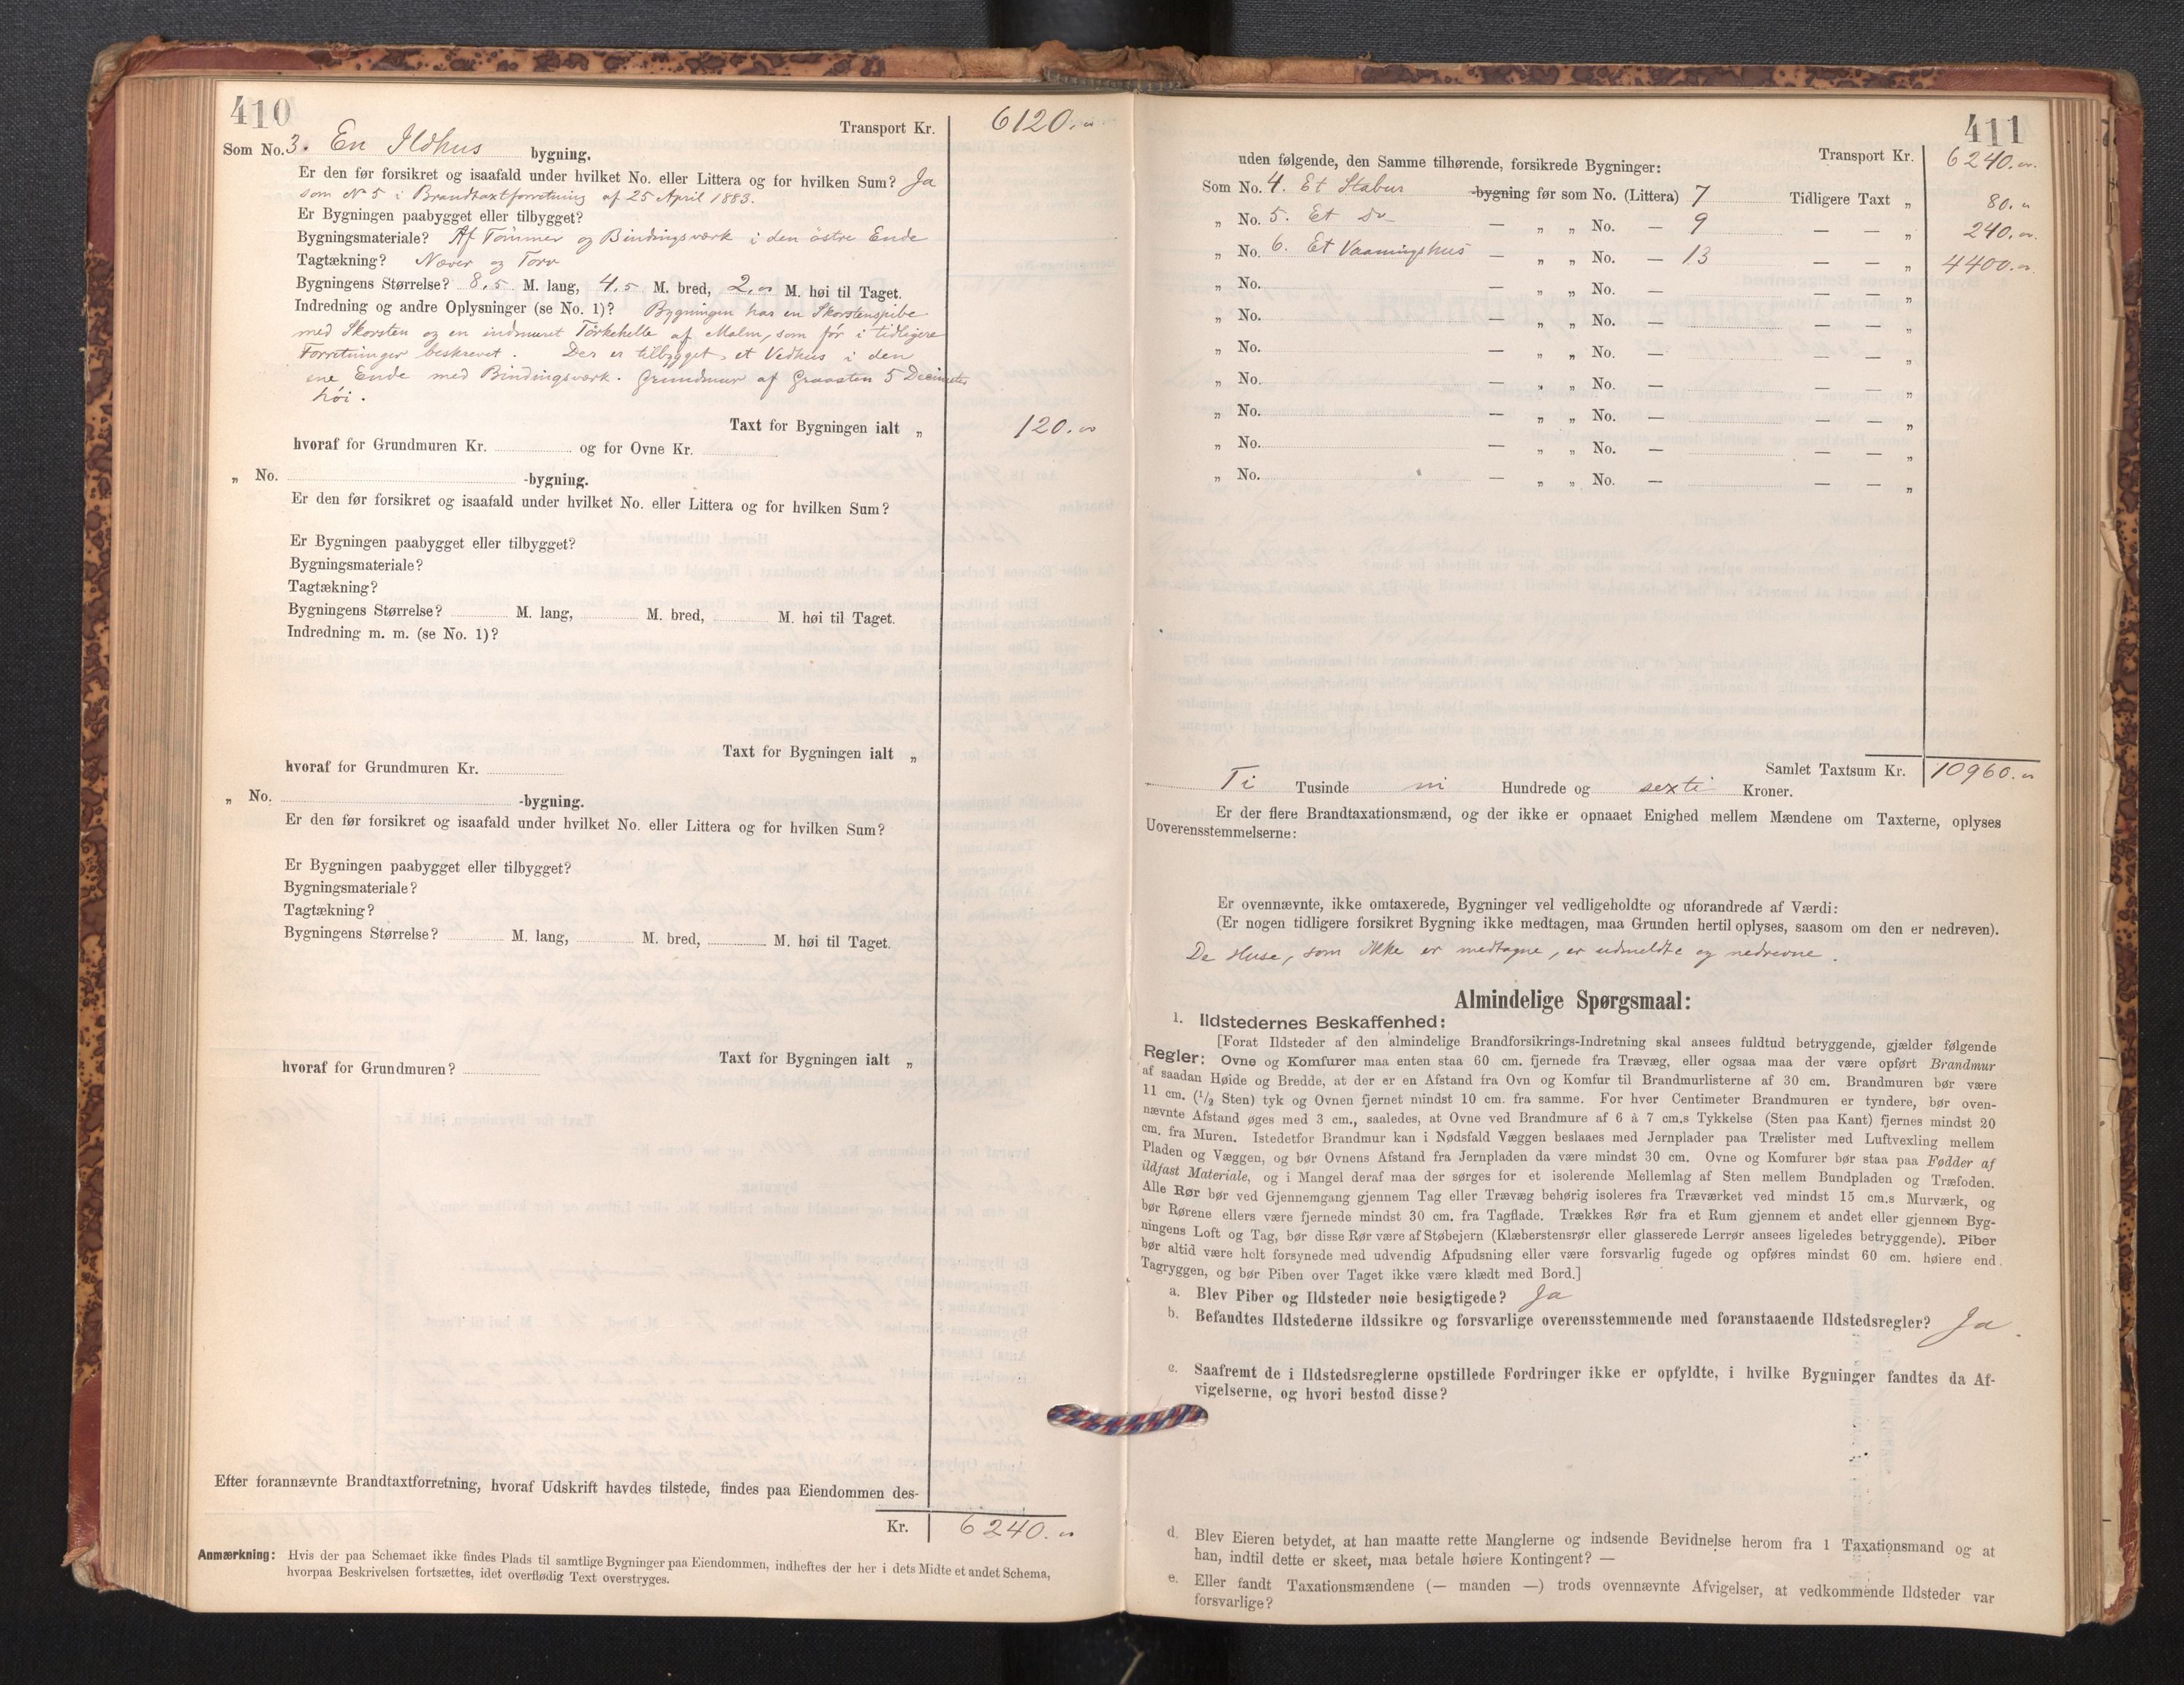 410
Transport Kr. 6120.00
Som No. 3. En Ildhus bygning.
Er den før forsikret og isaafald under hvilket No. eller Littera og for hvilken Sum? Ja
som № 5 i Brandtaxtforretning af 25 April 1883.
Er Bygningen paabygget eller tilbygget?
Bygningsmateriale? Af Tømmer og Bindingsværk i den østre Ende
Tagtækning? Næver og Torv
Bygningens Størrelse? 8,5 M. lang, 4,5 M. bred, 2,00 M. høi til Taget.
Indredning og andre Oplysninger (se No. 1)? Bygningen har en Skorstenspibe
med Skorsten og en indmuret Tørkehelle af Malm, som før i tidligere
Forretninger beskrevet. Der er tilbygget et Vedhus i den
ene Ende med Bindingsværk. Grundmur af Graasten 5 Decimeter
høi.
Taxt for Bygningen ialt „ 120.00
hvoraf for Grundmuren Kr. og for Ovne Kr.
„ No. -bygning.
Er den før forsikret og isaafald under hvilket No. eller Littera og for hvilken Sum?
Er Bygningen paabygget eller tilbygget?
Bygningsmateriale?
Tagtækning?
Bygningens Størrelse? M. lang, M. bred, M. høi til Taget.
Indredning m. m. (se No. 1)?
Taxt for Bygningen ialt „
hvoraf for Grundmuren Kr.
„ No. -bygning.
Er den før forsikret og isaafald under hvilket No. eller Littera og for hvilken Sum?
Er Bygningen paabygget eller tilbygget?
Bygningsmateriale?
Tagtækning?
Bygningens Størrelse? M. lang, M. bred, M. høi til Taget.
Taxt for Bygningen ialt „
hvoraf for Grundmuren?
Efter forannævnte Brandtaxtforretning, hvoraf Udskrift havdes tilstede, findes paa Eiendommen des-
Kr. 6240.00
Anmærkning: Hvis der paa Schemaet ikke findes Plads til samtlige Bygninger paa Eiendommen, indheftes der her i dets Midte et andet Schema,
hvorpaa Beskrivelsen fortsættes, idet overflødig Text overstryges.
411
Transport Kr. 6240.00
uden følgende, den Samme tilhørende, forsikrede Bygninger:
Som No. 4. Et Stabur -bygning før som No. (Littera) 7 Tidligere Taxt „ 80.00
„ No. 5. Et Do — „ „ No. — 9 — — „ 240.00
„ No. 6. Et Vaaningshus — „ „ No. — 13 — — „ 4400.00
„ No. — „ „ No. — — — „
„ No. — „ „ No. — — — „
„ No. — „ „ No. — — — „
„ No. — „ „ No. — — — „
„ No. — „ „ No. — — — „
„ No. — „ „ No. — — — „
„ No. — „ „ No. — — — „
Samlet Taxtsum Kr. 10960.00
Ti Tusinde ni Hundrede og sexti Kroner.
Er der flere Brandtaxationsmænd, og der ikke er opnaaet Enighed mellem Mændene om Taxterne, oplyses
Uoverensstemmelserne:
Er ovennævnte, ikke omtaxerede, Bygninger vel vedligeholdte og uforandrede af Værdi:
(Er nogen tidligere forsikret Bygning ikke medtagen, maa Grunden hertil oplyses, saasom om den er nedreven).
De Huse, som ikke er medtagne, er udmeldte og nedrevne.
Almindelige Spørgsmaal:
1. Ildstedernes Beskaffenhed:
[Forat Ildsteder af den almindelige Brandforsikrings-Indretning skal ansees fuldtud betryggende, gjælder følgende
Regler: Ovne og Komfurer maa enten staa 60 cm. fjernede fra Trævæg, eller ogsaa maa der være opført Brandmur
af saadan Høide og Bredde, at der er en Afstand fra Ovn og Komfur til Brandmurlisterne af 30 cm. Brandmuren bør være
11 cm. (1/2 Sten) tyk og Ovnen fjernet mindst 10 cm. fra samme. For hver Centimeter Brandmuren er tyndere, bør oven-
nævnte Afstand øges med 3 cm., saaledes, at Ovne ved Brandmure af 6 à 7 cm.s Tykkelse (Sten paa Kant) fjernes mindst 20
cm. fra Muren. Istedetfor Brandmur kan i Nødsfald Væggen beslaaes med Jernplader paa Trælister med Luftvexling mellem
Pladen og Væggen, og bør Ovnens Afstand fra Jernpladen da være mindst 30 cm. Ovne og Komfurer bør staa paa Fødder af
ildfast Materiale, og i Mangel deraf maa der sørges for et isolerende Mellemlag af Sten mellem Bundpladen og Træfoden.
Alle Rør bør ved Gjennemgang gjennem Tag eller Trævæg behørig isoleres fra Træværket ved mindst 15 cm.s Murværk, og
bør Rørene ellers være fjernede mindst 30 cm. fra Tagflade. Trækkes Rør fra et Rum gjennem et andet eller gjennem Byg-
ningens Loft og Tag, bør disse Rør være af Støbejern (Klæberstensrør eller glasserede Lerrør ansees ligeledes betryggende). Piber
bør altid være holt forsynede med udvendig Afpudsning eller være forsvarlig fugede og opføres mindst 60 cm. høiere end
Tagryggen, og bør Piben over Taget ikke være klædt med Bord.]
a. Blev Piber og Ildsteder nøie besigtigede? Ja
b. Befandtes Ildstederne ildssikre og forsvarlige overensstemmende med foranstaaende Ildstedsregler? Ja.
c. Saafremt de i Ildstedsreglerne opstillede Fordringer ikke er opfyldte, i hvilke Bygninger fandtes da Af-
vigelserne, og hvori bestod disse?
d. Blev Eieren betydet, at han maatte rette Manglerne og indsende Bevidnelse herom fra 1 Taxationsmand og at
han, indtil dette er skeet, maa betale høiere Kontingent? —
e. Eller fandt Taxationsmændene (— manden —) trods ovennævnte Afvigelser, at vedkommende Ildsteder var
forsvarlige?